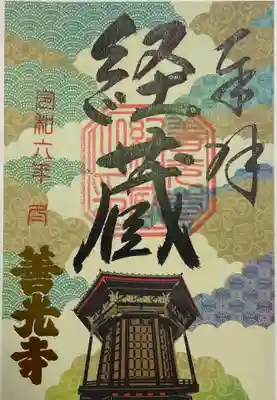 奉拝
経蔵
令和六年 冬
善光寺